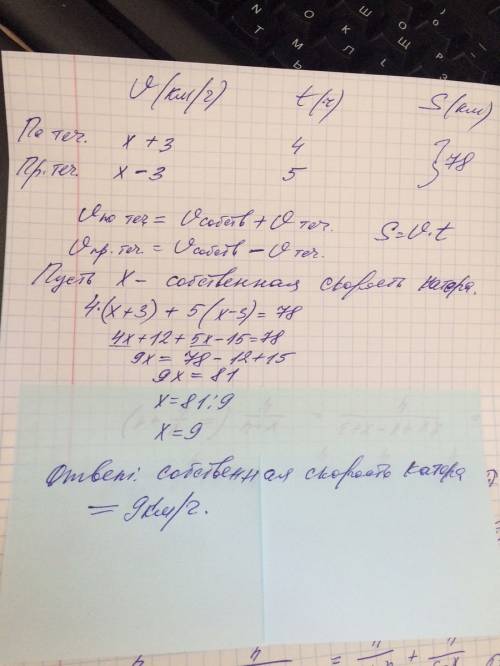 V(км/ч) t(ч) S(км)
По теч. x + 3 4
Пр. теч. x - 3 5 } 78
Vпо теч = Vсобств + Vтеч.
Vпр. теч. = Vсобств - Vтеч. S=V·t
Пусть X - собственная скорость катера.
4·(x+3) + 5(x-3) = 78
4x+12+5x-15=78
9x = 78-12+15
9x = 81
x=81:9
x=9
Ответ: собственная скорость катера
= 9км/ч.